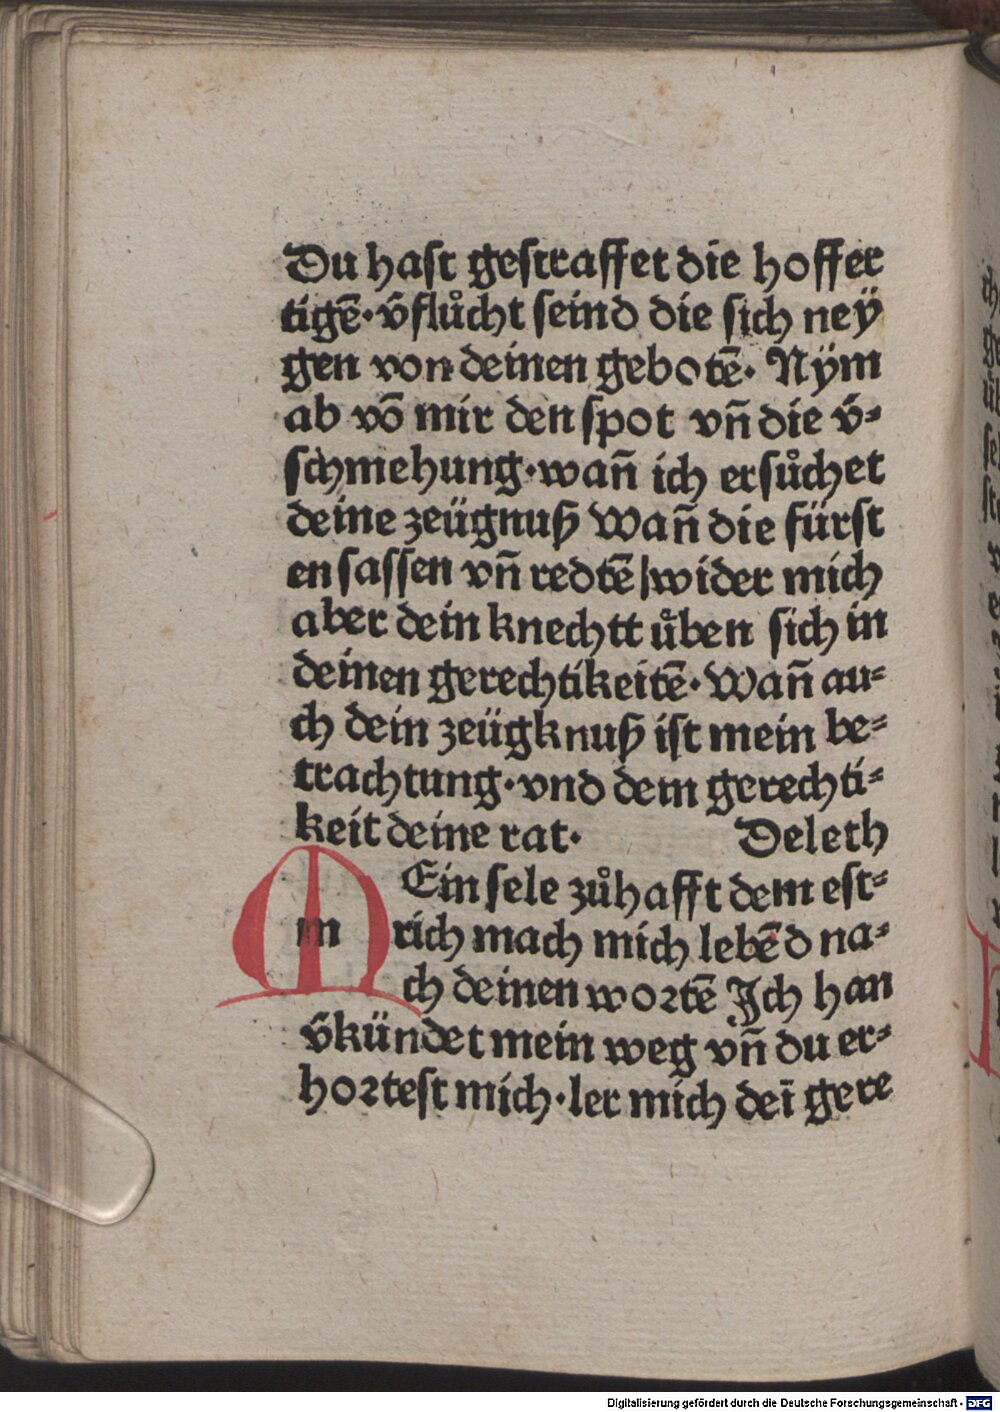 Du hast gestraffet die hoffer
tigē· v̄flůcht seind die sich neÿ
gen von deinen gebotē· Nÿm
ab vō mir den spot vn̄ die v̄⸗
schmehung·wan̄ ich ersůchet
deine zeügnuß Wan̄ die fürst
en sassen vn̄ redtē|wider mich
aber dein knechtt ůben sich in
deinen gerechtikeitē· Wan̄ au⸗
ch dein zeügknuß ist mein be⸗
trachtung·vnd dem gerechti⸗
keit deine rat· Deleth
M Ein sele zůhafft dem est⸗
m rich mach mich lebēd na⸗
ch deinen wortē Ich han
v̄kündet mein weg vn̄ du er⸗
hortest mich·ler mich deī gere
Digitalisierung gefördert durch die Deutsche Forschungsgemeinschaft - DFG